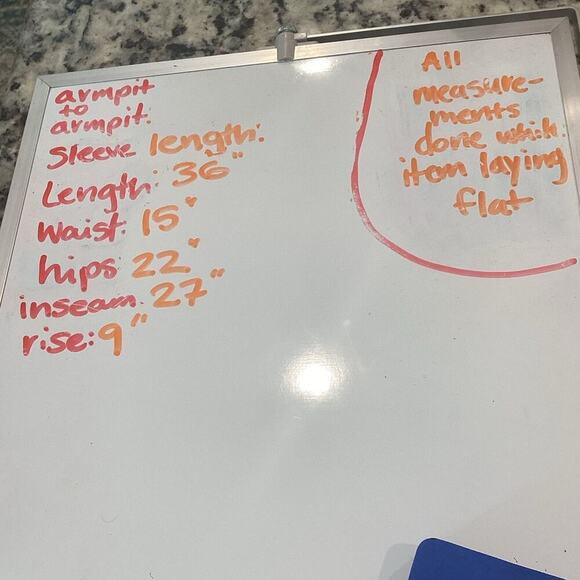 armpit
to
armpit:
Sleeve length:
Length: 36"
Waist: 15"
hips: 22"
inseam: 27"
rise: 9"
All
measure-
ments
done
item laying
flat